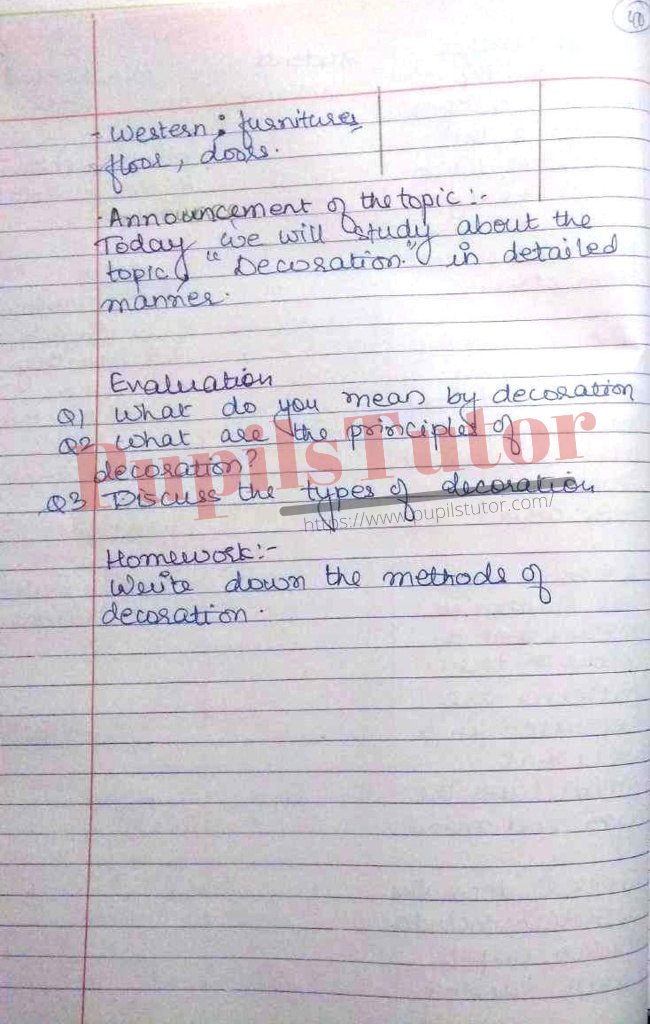 40
- Western : furnitures
floor, doors.
- Announcement of the topic :-
Today we will study about the
topic, "Decoration." in detailed
manner.
Evaluation
Q1 What do you mean by decoration
Q2 What are the principles of
decoration?
Q3 Discuss the types of decoration
PupilsTutor
https://www.pupilstutor.com/
Homework:-
Write down the methods of
decoration.